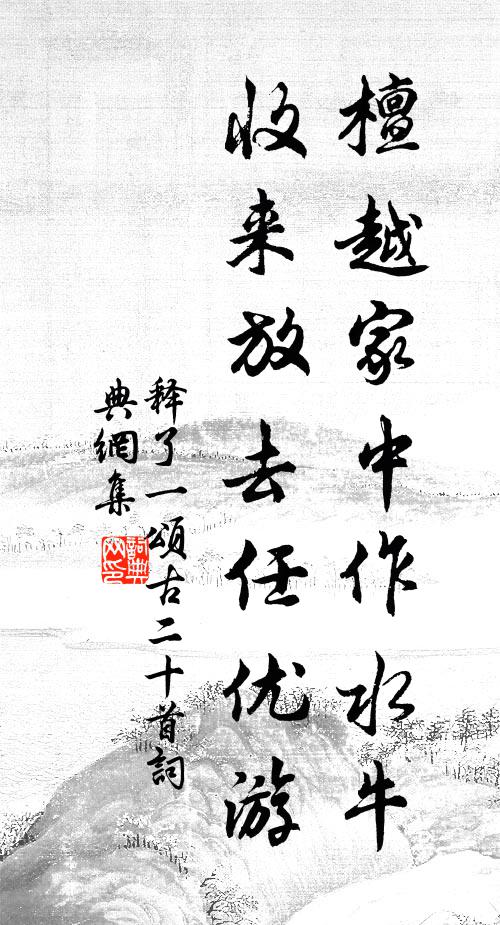 檀越家中作水牛
收来放去任优游
释了一颂古二十首詞
典網集
詞典網印